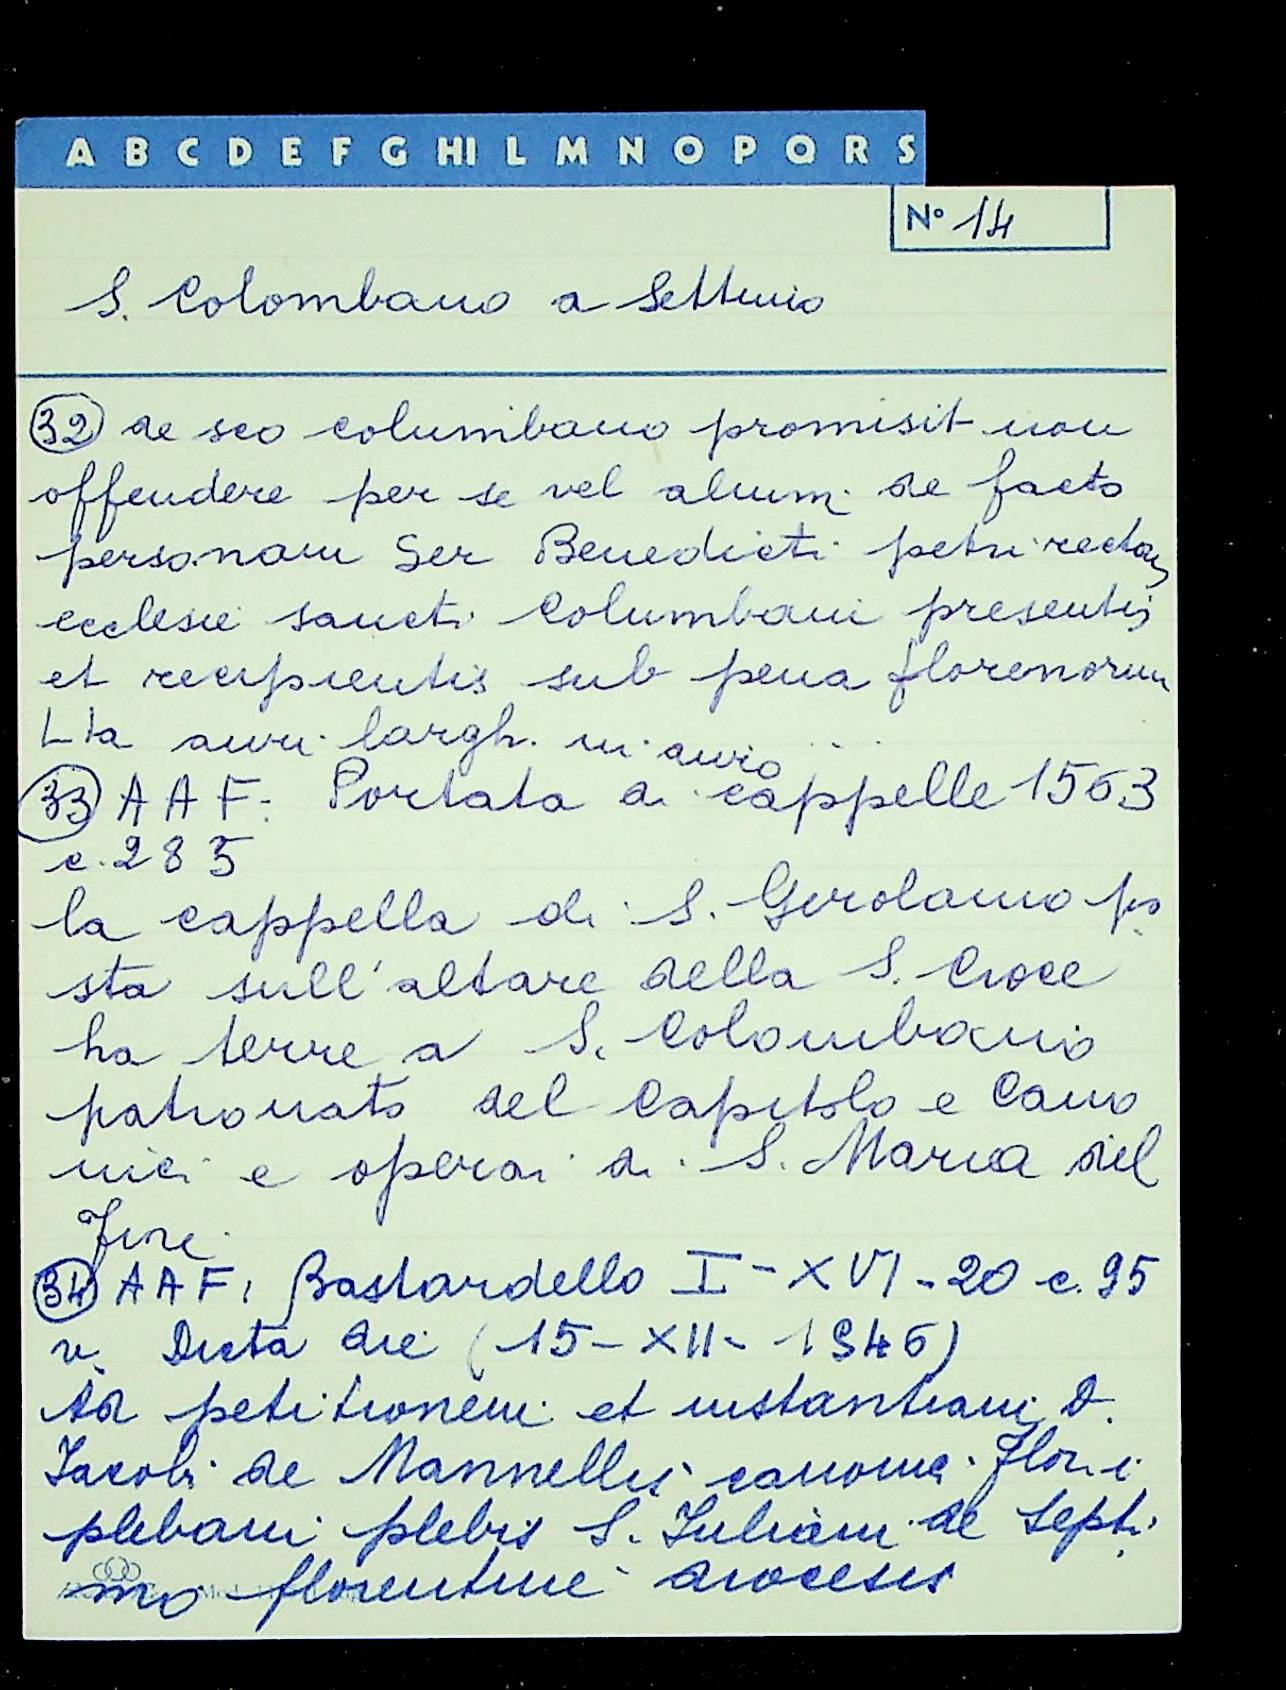 A B C D E F G HI L M N O P Q R S
N° 14
S. Colombano a Settimo
32 de sco columbano promisit non
offendere per se vel alium de facto
personam Ser Benedicti petri rectoris
ecclesie sancti Columbani presentis
et recipientis sub pena florenorum
Lta auri largh. in auro ...
33 A A F: Portata di cappelle 1563
c. 285
la cappella di S. Girolamo po
sta sull'altare della S. Croce
ha terre a S. Colombano
patronato del Capitolo e Cano
nici e operai di S. Maria del
fiore
34 A A F, Bastardello I - XVI - 20 c. 95
v. Dicta die (15 - XII - 1546)
Ad petitionem et instantiam D.
Iacobi de Mannellis canonici flor. i
plebani plebis S. Iuliani de Septi
mo florentine diocesis